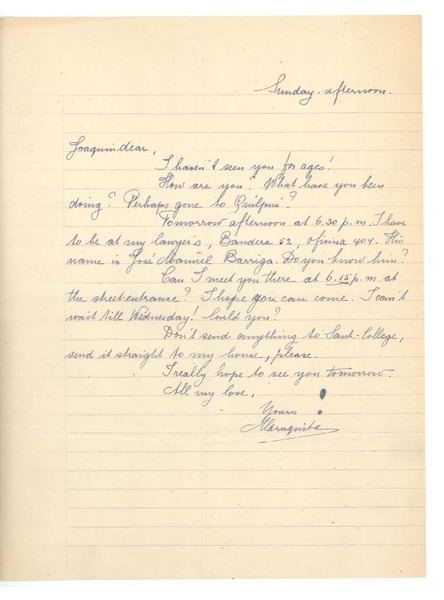 Sunday. afternoon.
Joaquin dear,
I haven't seen you for ages!
How are you? What have you been
doing? Perhaps gone to Quilpué?
Tomorrow afternoon at 6.30 p.m. I have
to be at my lawyer's, Bandera 52, oficina 404. His
name is José Manuel Barriga. Do you know him?
Can I meet you there at 6.15 p.m at
the street entrance? I hope you can come. I can't
wait till Wednesday! Could you?
Don't send anything to Sant-College,
send it straight to my house, please.
I really hope to see you tomorrow
All my love, !
Yours
Maruquita